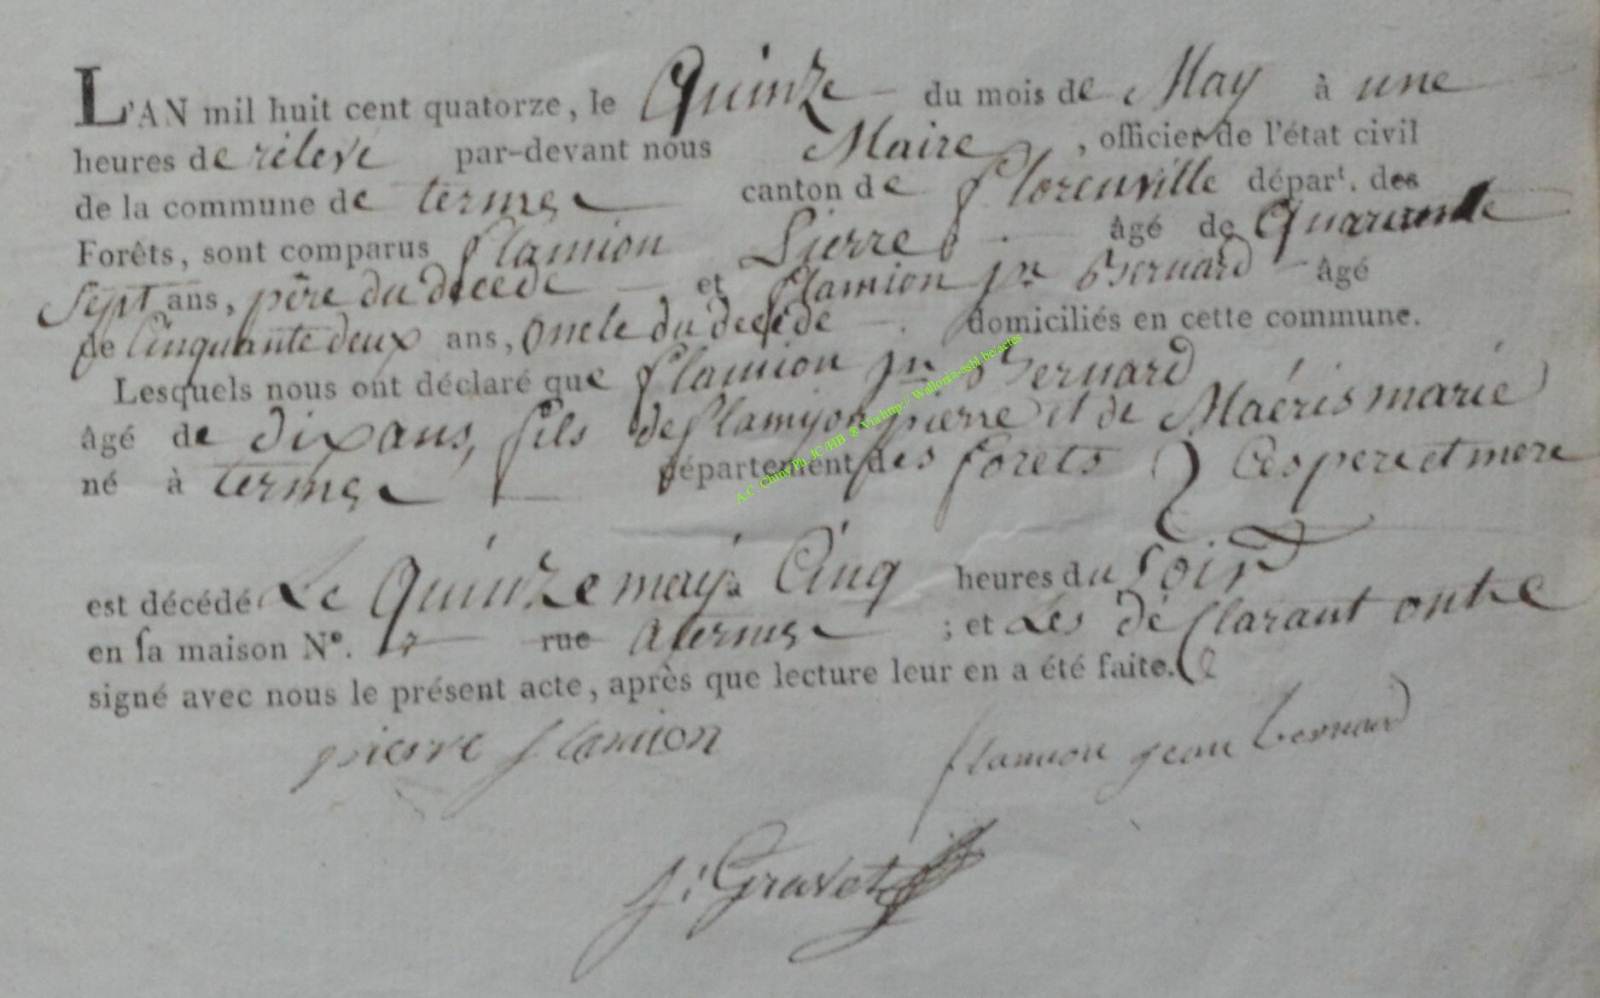 L'AN mil huit cent quatorze, le Quinze du mois de May à une
heures de rélevé par-devant nous Maire, officier de l'état civil
de la commune de termes canton de florenville départ. des
Forêts, sont comparus flamion Pierre âgé de Quarante
Sept ans, père du décédé et flamion jn Bernard âgé
de Cinquante deux ans, oncle du decédé domiciliés en cette commune.
Lesquels nous ont déclaré que flamion jn Bernard
âgé de dix ans, fils de flamion pierre et de marie
né à termes département des forets Ces pere et mere
est décédé Le Quinze may a Cinq heures du Soir
en sa maison N°. rue a termes ; et Les déclarant ont
signé avec nous le présent acte, après que lecture leur en a été faite.
pierre flamion
flamion jean bernard
J: Gravet
A.C. Chiny Ph. JC/HB & Via http:// Wallonia-asbl.be/actes